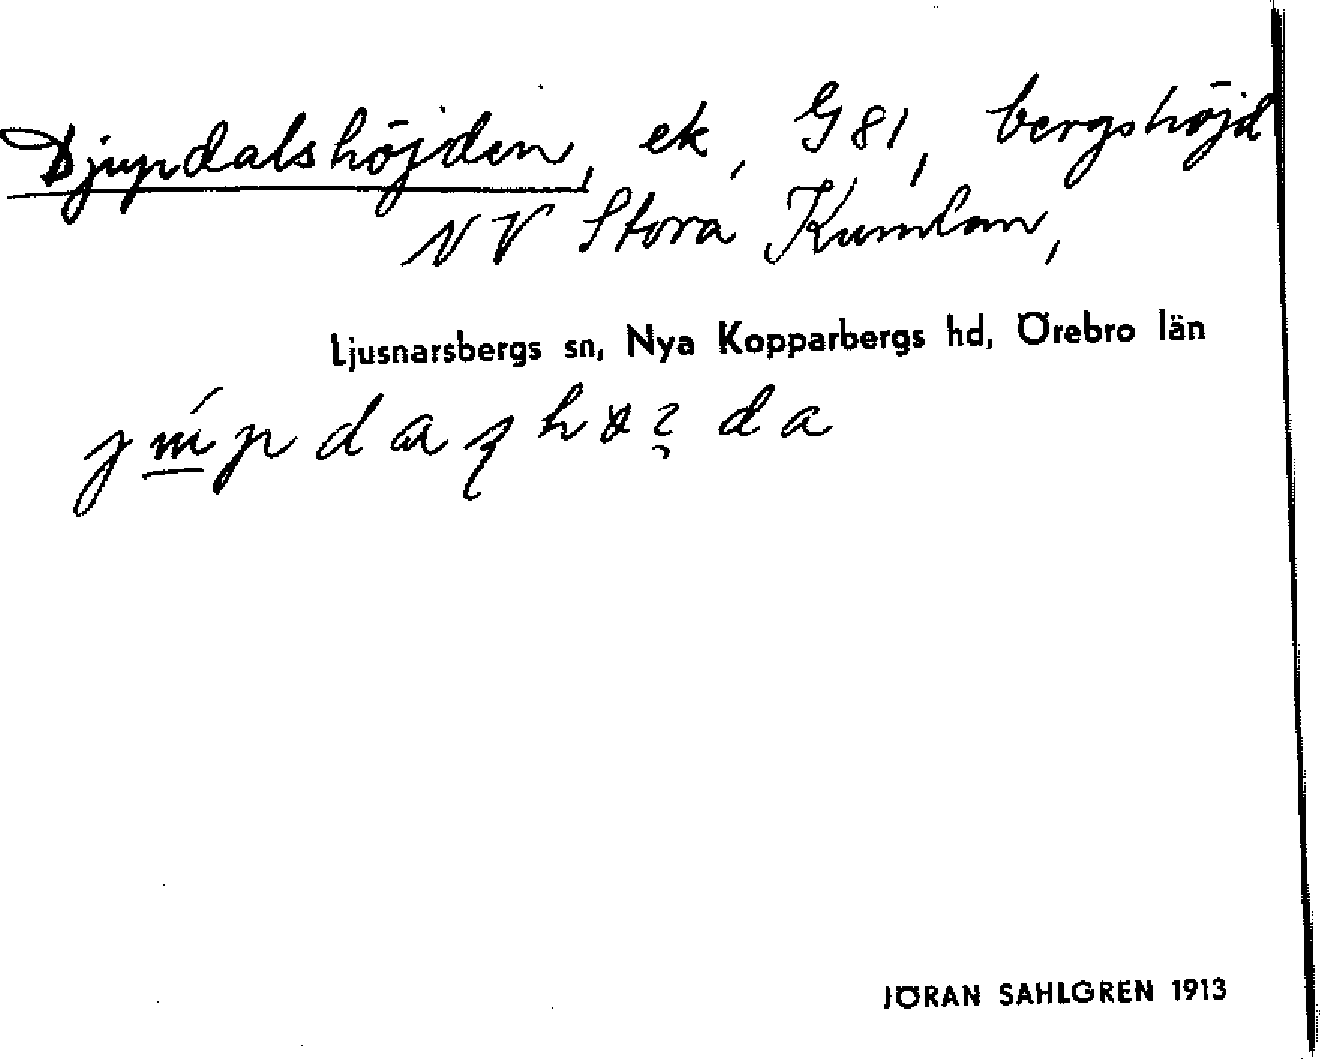 Djupdalshöjden, ek, G 81, bergshöjd
NV Stora Kumlan,
Ljusnarsbergs sn, Nya Kopparbergs hd, Örebro län
JÖRAN SAHLGREN 1913